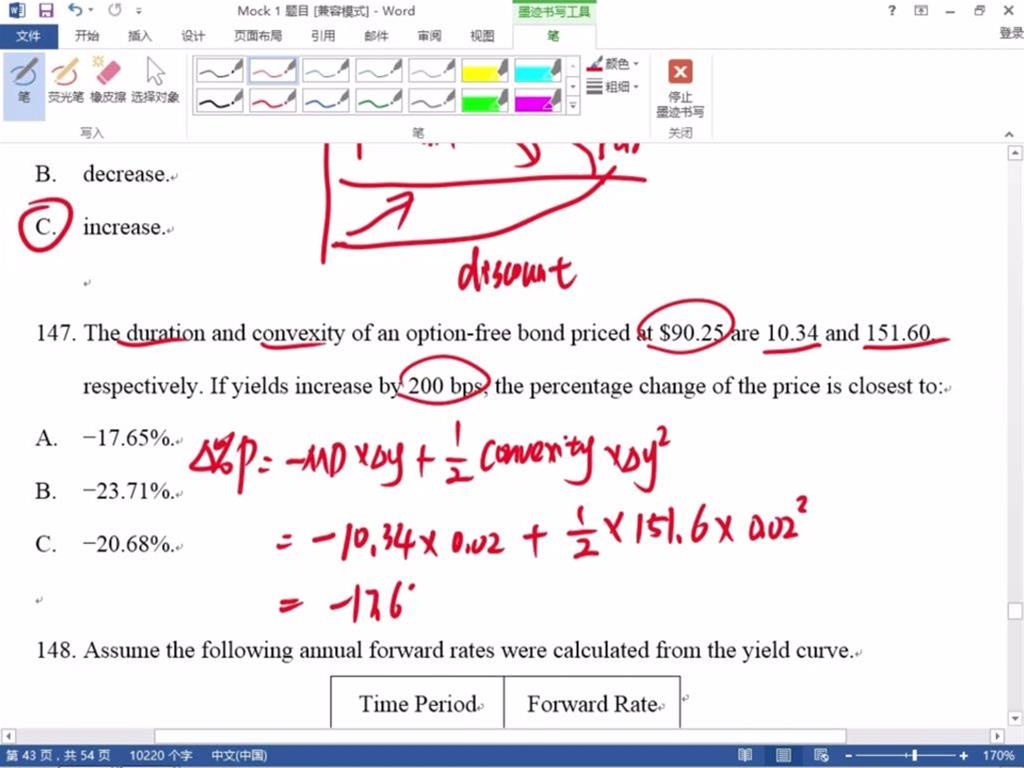 Mock 1 题目 [兼容模式] - Word
墨迹书写工具
文件 开始 插入 设计 页面布局 引用 邮件 审阅 视图 笔 登录
笔 荧光笔 橡皮擦 选择对象
颜色
粗细
停止
墨迹书写
写入 笔 关闭
B. decrease.
C. increase.
discount
147. The duration and convexity of an option-free bond priced at $90.25 are 10.34 and 151.60,
respectively. If yields increase by 200 bps, the percentage change of the price is closest to:
A. −17.65%.
Δ%P = -MD × Δy + 1/2 Convexity × Δy²
B. −23.71%.
= -10.34 × 0.02 + 1/2 × 151.6 × 0.02²
C. −20.68%.
= -17.6
148. Assume the following annual forward rates were calculated from the yield curve.
Time Period Forward Rate
第 43 页，共 54 页 10220 个字 中文(中国) 170%